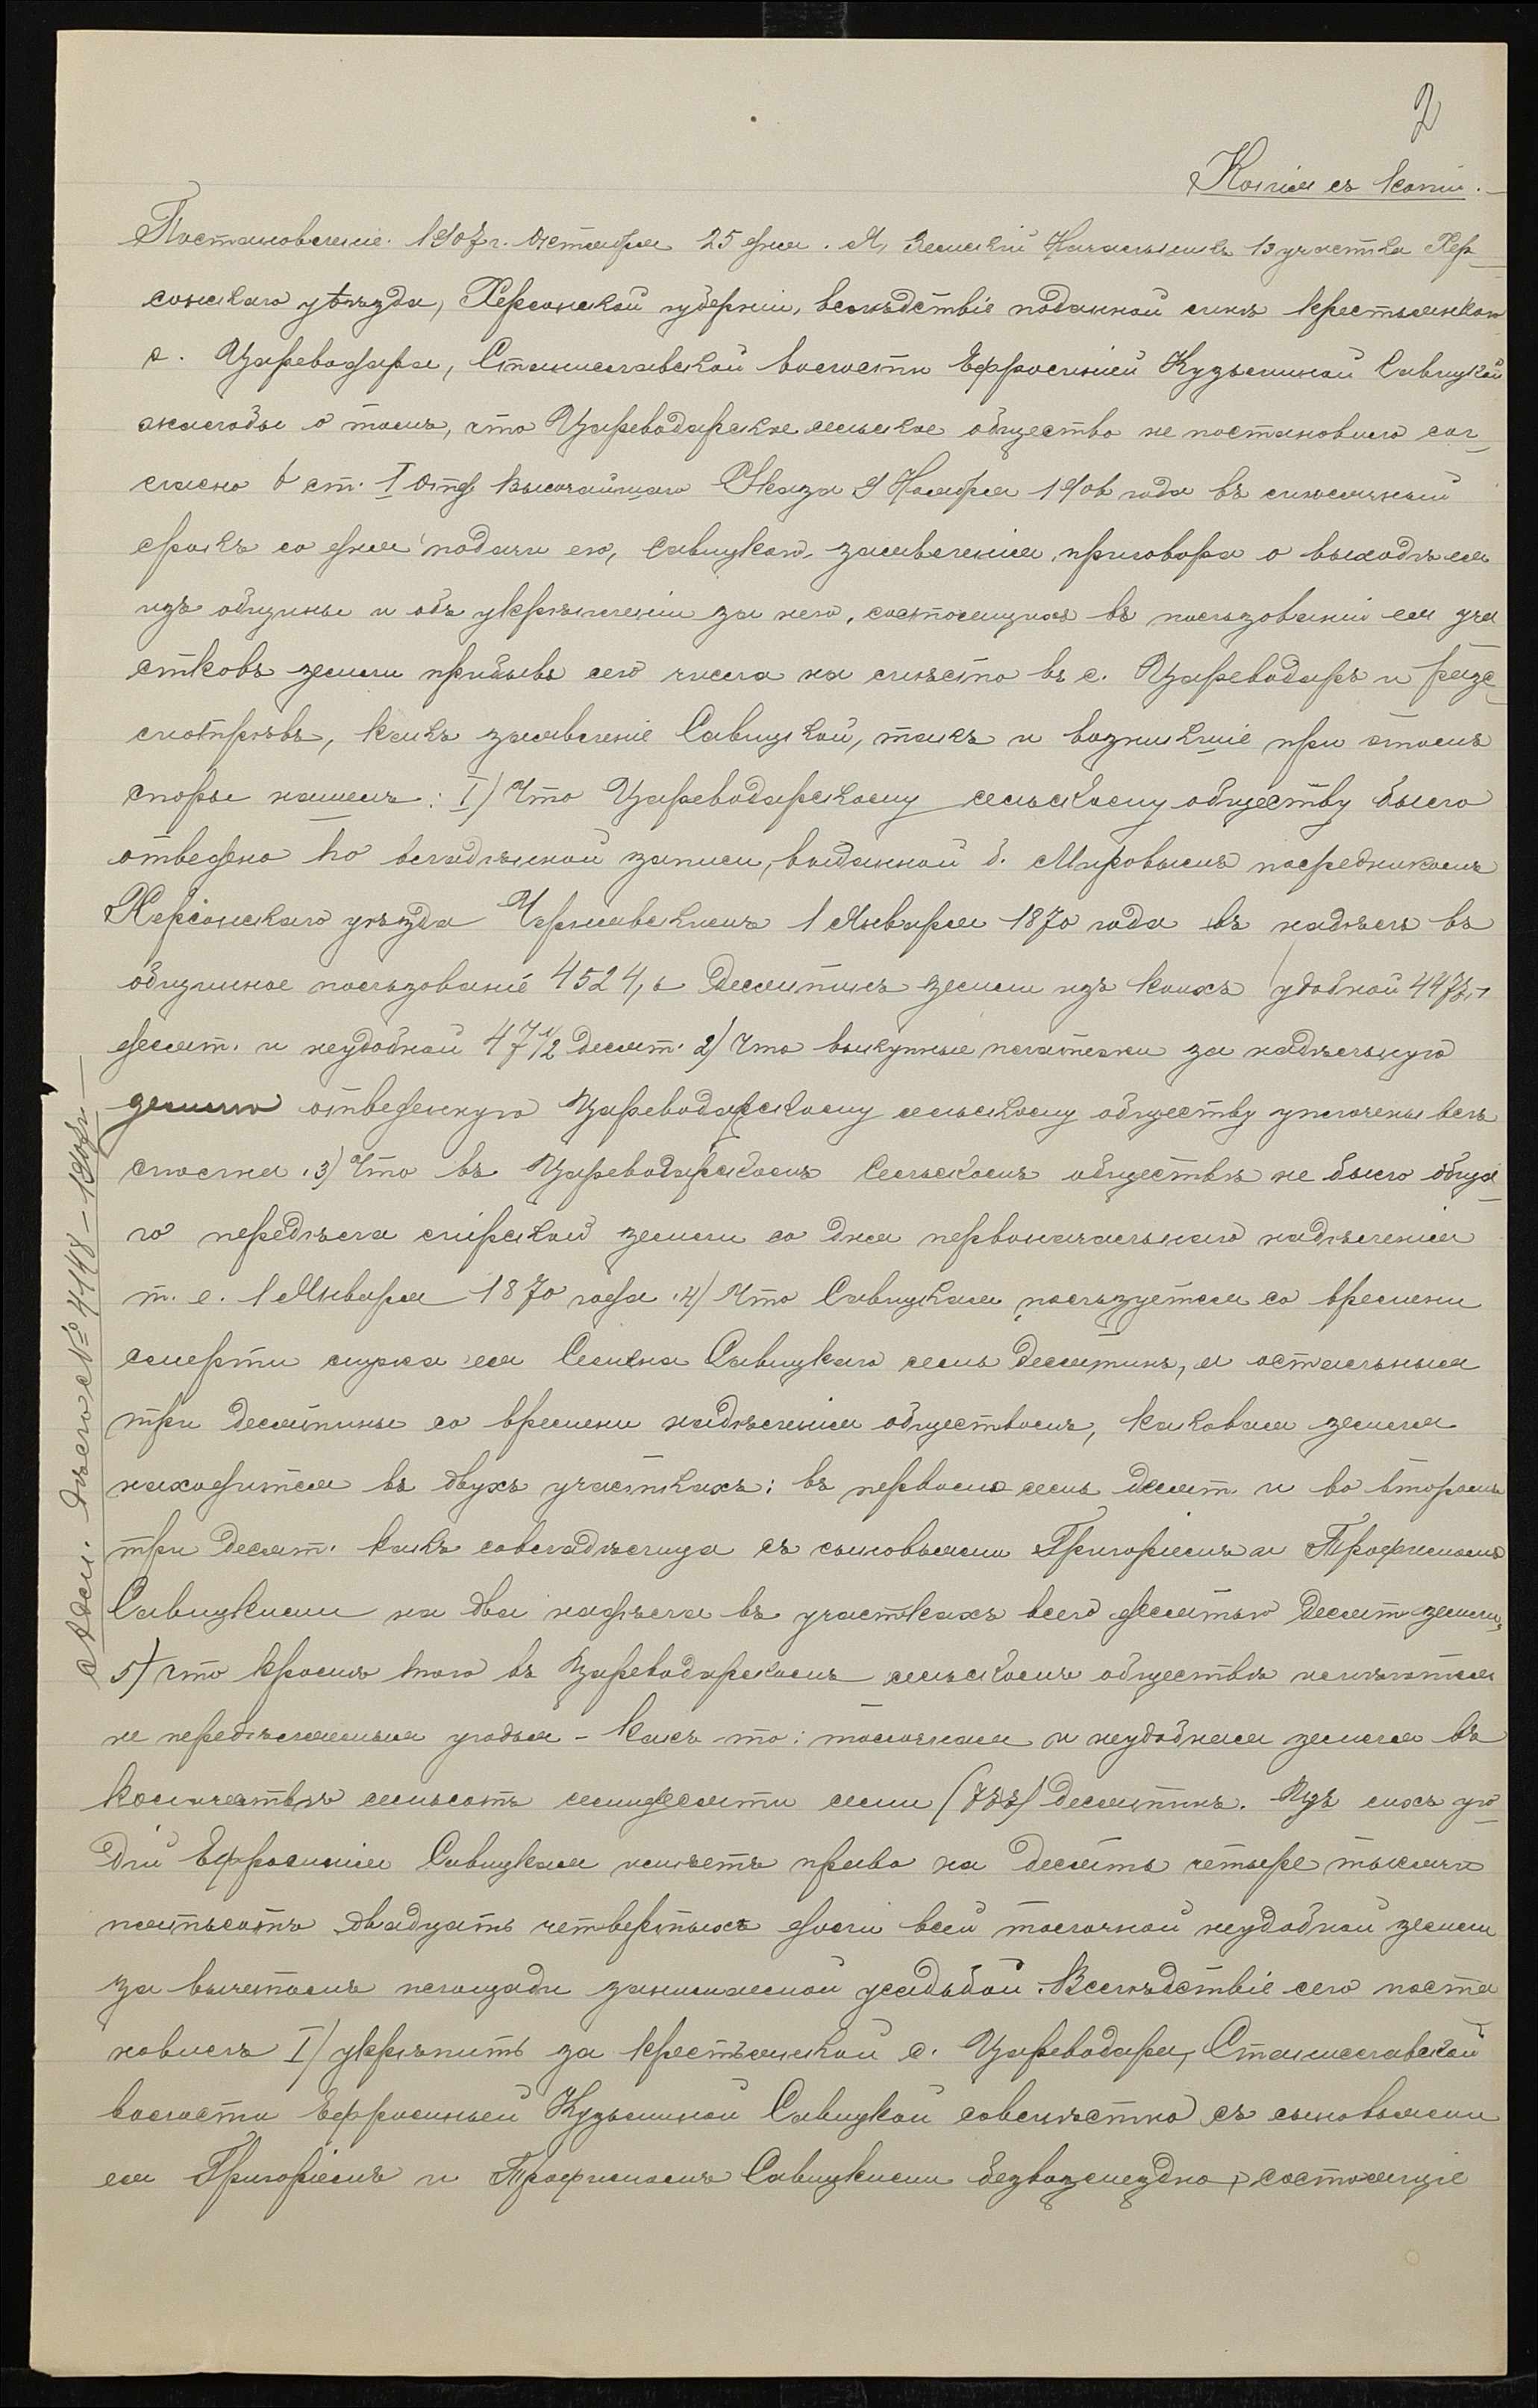 2
Копія съ копіи.
Постановленіе. 1907 г. Октября 25 дня. Я, Земскій Начальникъ 13 участка Хер-
сонскаго уѣзда, Херсонской губерніи, вслѣдствіе поданной мнѣ крестьянкою
с. Цареводара, Станиславской волости Ефросиніей Кузьминой Савицкой
жалобы о томъ, что Цареводарское сельское общество не постановило сог-
ласно 6 ст. I отд. Высочайшаго Указа 9 Ноября 1906 года въ мѣсячный
срокъ со дня подачи ею, Савицкою, заявленія, приговора о выходѣ ея
изъ общины и объ укрѣпленіи за нею, состоящихъ въ пользованіи ея уча
стковъ земли прибывъ сего числа на мѣсто въ с. Цареводаръ и разс-
мотрѣвъ, какъ заявленіе Савицкой, такъ и возникшіе при этомъ
споры нашелъ: I) Что Цареводарскому сельскому обществу было
отведено по владѣнной записи, выданной б. Мировымъ посредникомъ
Херсонскаго уѣзда Чернявскимъ 1 Января 1870 года въ надѣлъ въ
общинное пользованіе 4524, десятинъ земли изъ коихъ удобной
десят. и неудобной 47 1/2 десят. 2) Что выкупные платежи за надѣльную
землю отведенную Цареводарскому сельскому обществу уплочены всѣ
сполна. 3) Что въ Цареводарскомъ Сельскомъ обществѣ не было обща-
го передѣла мірской земли со дня первоначальнаго надѣленія
т. е. 1 Января 1870 года. 4) Что Савицкая пользуется со времени
смерти мужа ея Семена Савицкаго семь десятинъ, а остальныя
три десятины со времени надѣленія обществомъ, каковая земля
находится въ двухъ участкахъ: въ первомъ семь десят. и во второмъ
три десят. какъ совладѣлица съ сыновьями Григоріемъ и Трофимомъ
Савицкими на два надѣла въ участкахъ всего десятью десят. земли,
5) что кромѣ того въ Цареводарскомъ сельскомъ обществѣ имѣются
не передѣляемыя угодья - какъ-то: толочная и неудобная земля въ
количествѣ семьсотъ семидесяти семи (777) десятинъ. Изъ сихъ уго-
дій Ефросинія Савицкая имѣетъ право на десять четыре тысячи
пятьсотъ двадцать четвертыхъ доли всей толочной неудобной земли
за вычетомъ площади занимаемой усадьбой. Вслѣдствіе сего поста
новилъ I) укрѣпить за крестьянкой с. Цареводара, Станиславской
волости Ефросиньей Кузьминой Савицкой совмѣстно съ сыновьями
ея Григоріемъ и Трофимомъ Савицкими безвозмездно, состоящіе
Адм. дѣло № 4148 - 1908 г.